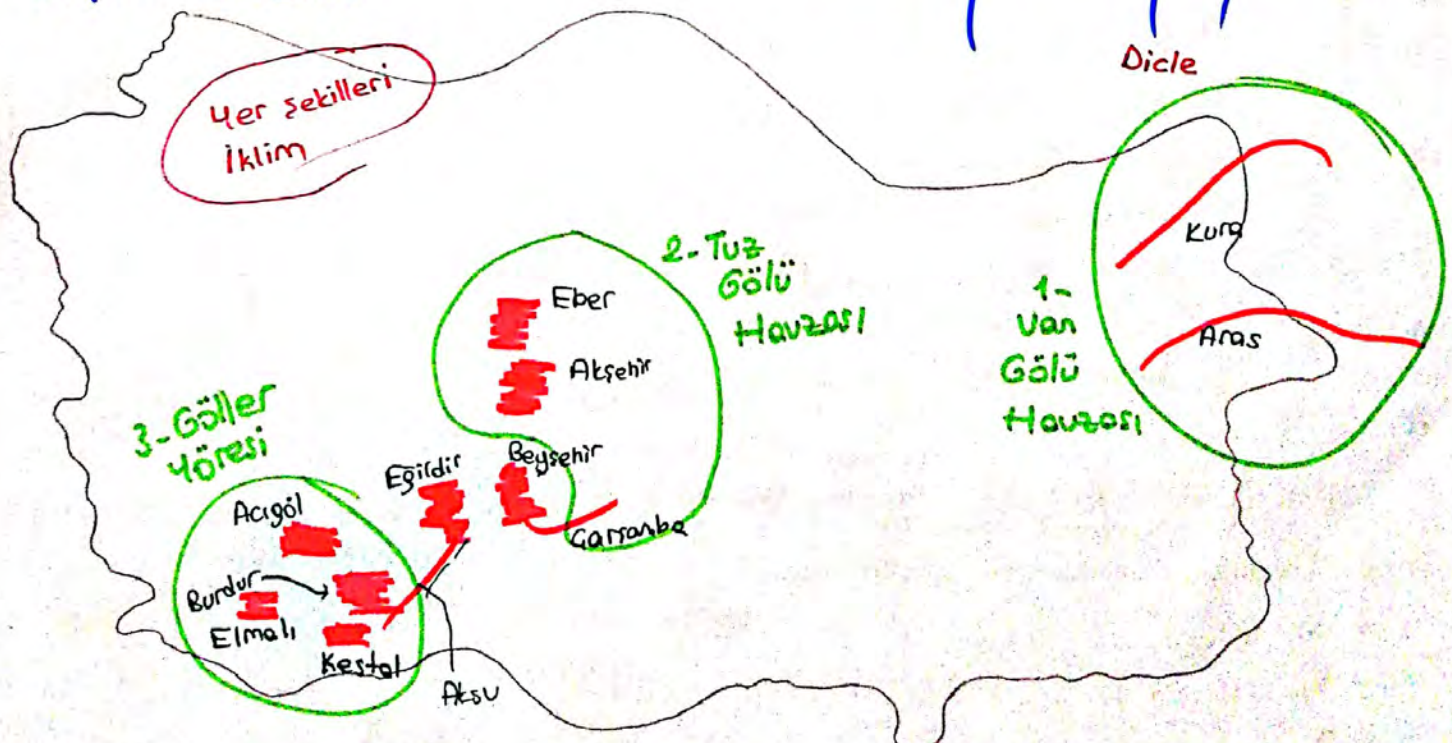 Dicle
Yer şekilleri
İklim
Kura
Aras
1-
Van
Gölü
Havzası
2-Tuz
Gölü
Havzası
Eber
Akşehir
Beyşehir
Çarşamba
Eğirdir
3-Göller
Yöresi
Acıgöl
Burdur
Elmalı
Kestel
Aksu